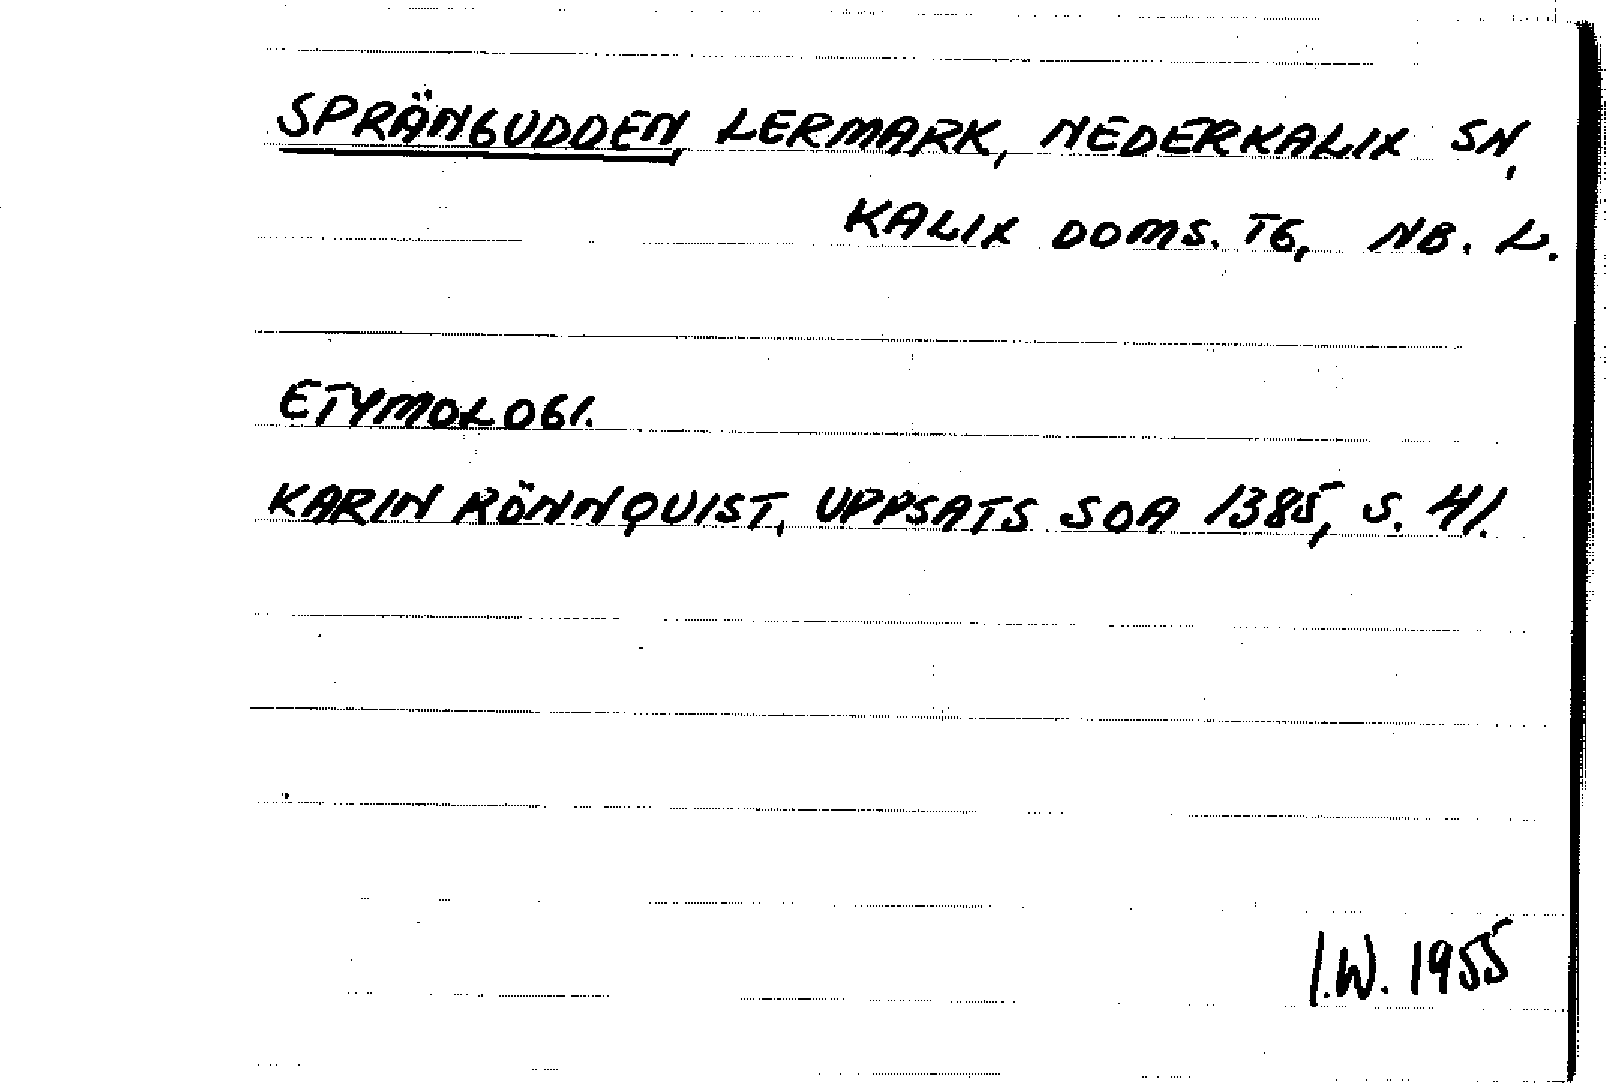 SPRÄNGUDDEN, LERMARK, NEDERKALIX SN,
KALIX DOMS. TG, NB. L.
ETYMOLOGI.
KARIN RÖNNQUIST, UPPSATS SOA 1385, S. 41.
I.W. 1955